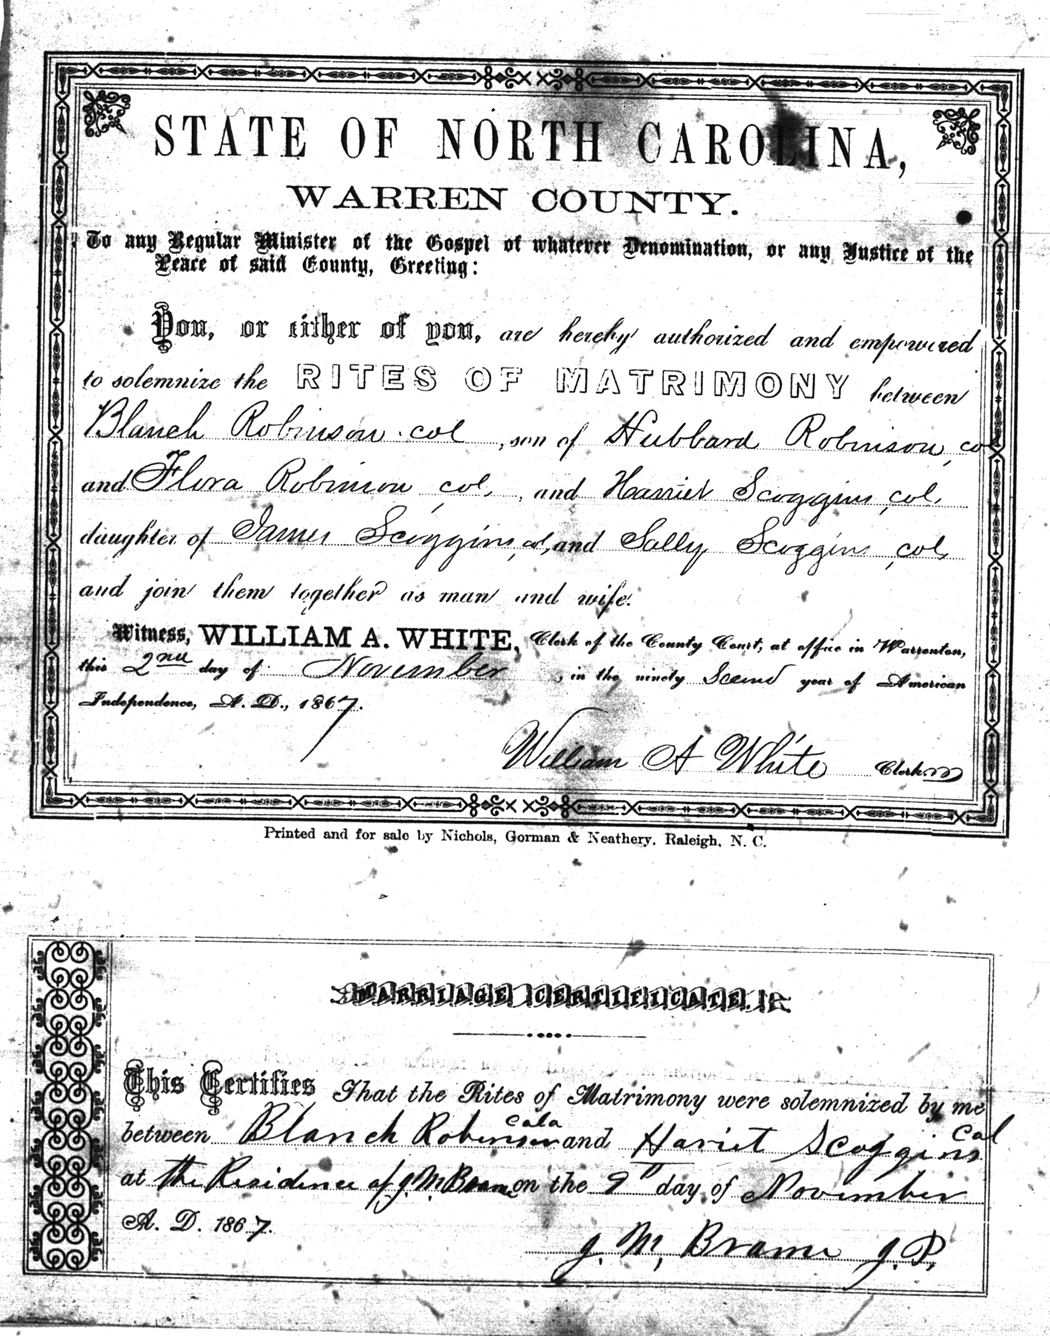 STATE OF NORTH CAROLINA,
WARREN COUNTY.
To any Regular Minister of the Gospel of whatever Denomination, or any Justice of the
Peace of said County, Greeting:
You, or either of you, are hereby authorized and empowered
to solemnize the RITES OF MATRIMONY between
Blanch Robinson col , son of Hubbard Robinson, col
and Flora Robinson col, , and Harriet Scoggins, col,
daughter of James Scoggins, col, and Sally Scoggins, col,
and join them together as man and wife.
Witness, WILLIAM A. WHITE, Clerk of the County Court, at office in Warrenton,
this 2nd day of November , in the ninety Second year of American
Independence, A. D., 1867.
William A White Clerk
Printed and for sale by Nichols, Gorman & Neathery, Raleigh, N. C.
MARRIAGE CERTIFICATE.
This Certifies That the Rites of Matrimony were solemnized by me
between Blanch Robinson and Hariet Scoggins Col
at the Residence of J M Brame on the 9th day of November
A. D. 1867.
J. M. Brame J. P.